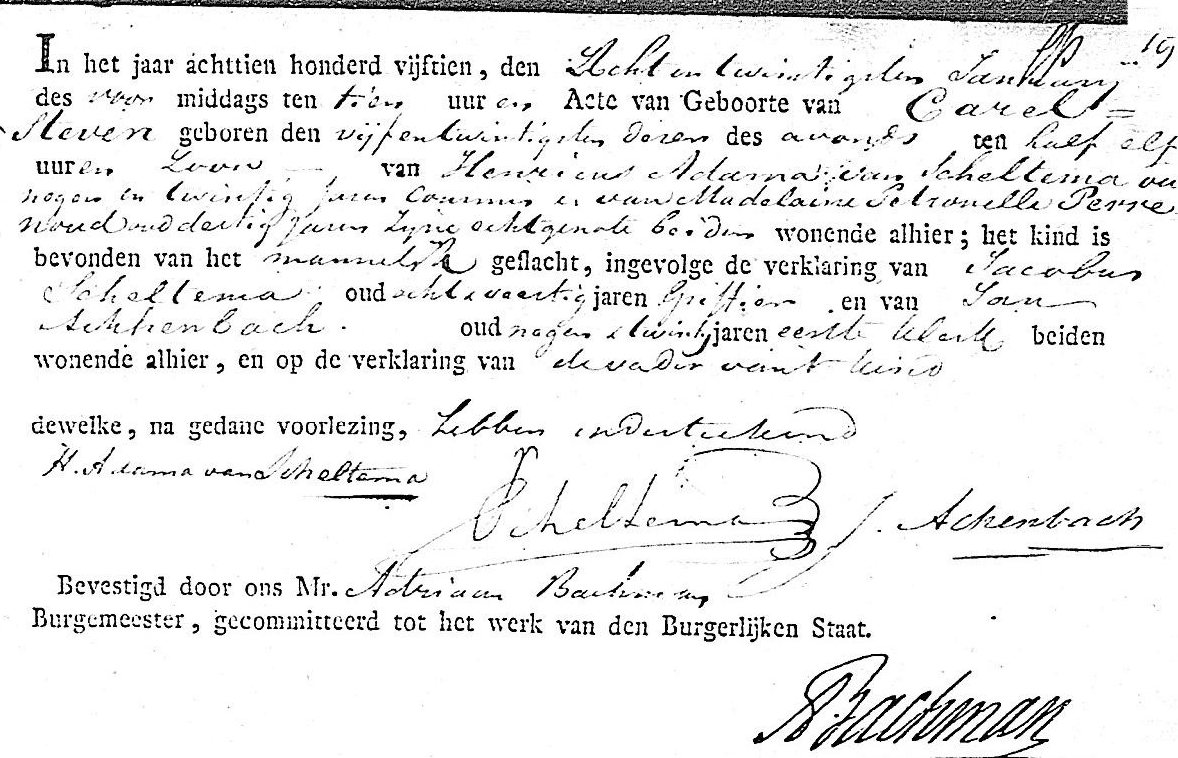 19
In het jaar achttien honderd vijftien, den Acht en twintigsten Januarij
des voor middags ten tien uur en Acte van Geboorte van Carel=
Steven geboren den vijfentwintigsten dezer des avonds ten half elf
uuren Zoon van Henricus Adama van Scheltema ou
negen en twintig Jaren Commies en van Madelaine Petronelle Perre
noud oud dertig Jaren Zyne echtgenote beiden wonende alhier; het kind is
bevonden van het mannelijk geslacht, ingevolge de verklaring van Jacobus
Scheltema oud acht & veertig jaren Griffier en van Jan
Achkenbach. oud negen & twintig jaren eerste klerk beiden
wonende alhier, en op de verklaring van de vader van't kind
dewelke, na gedane voorlezing, hebben ondertekend
H. Adama van Scheltema
Scheltema J. Achenbach
Bevestigd door ons Mr. Adriaan Bachman
Burgemeester, gecommitteerd tot het werk van den Burgerlijken Staat.
A Bachman